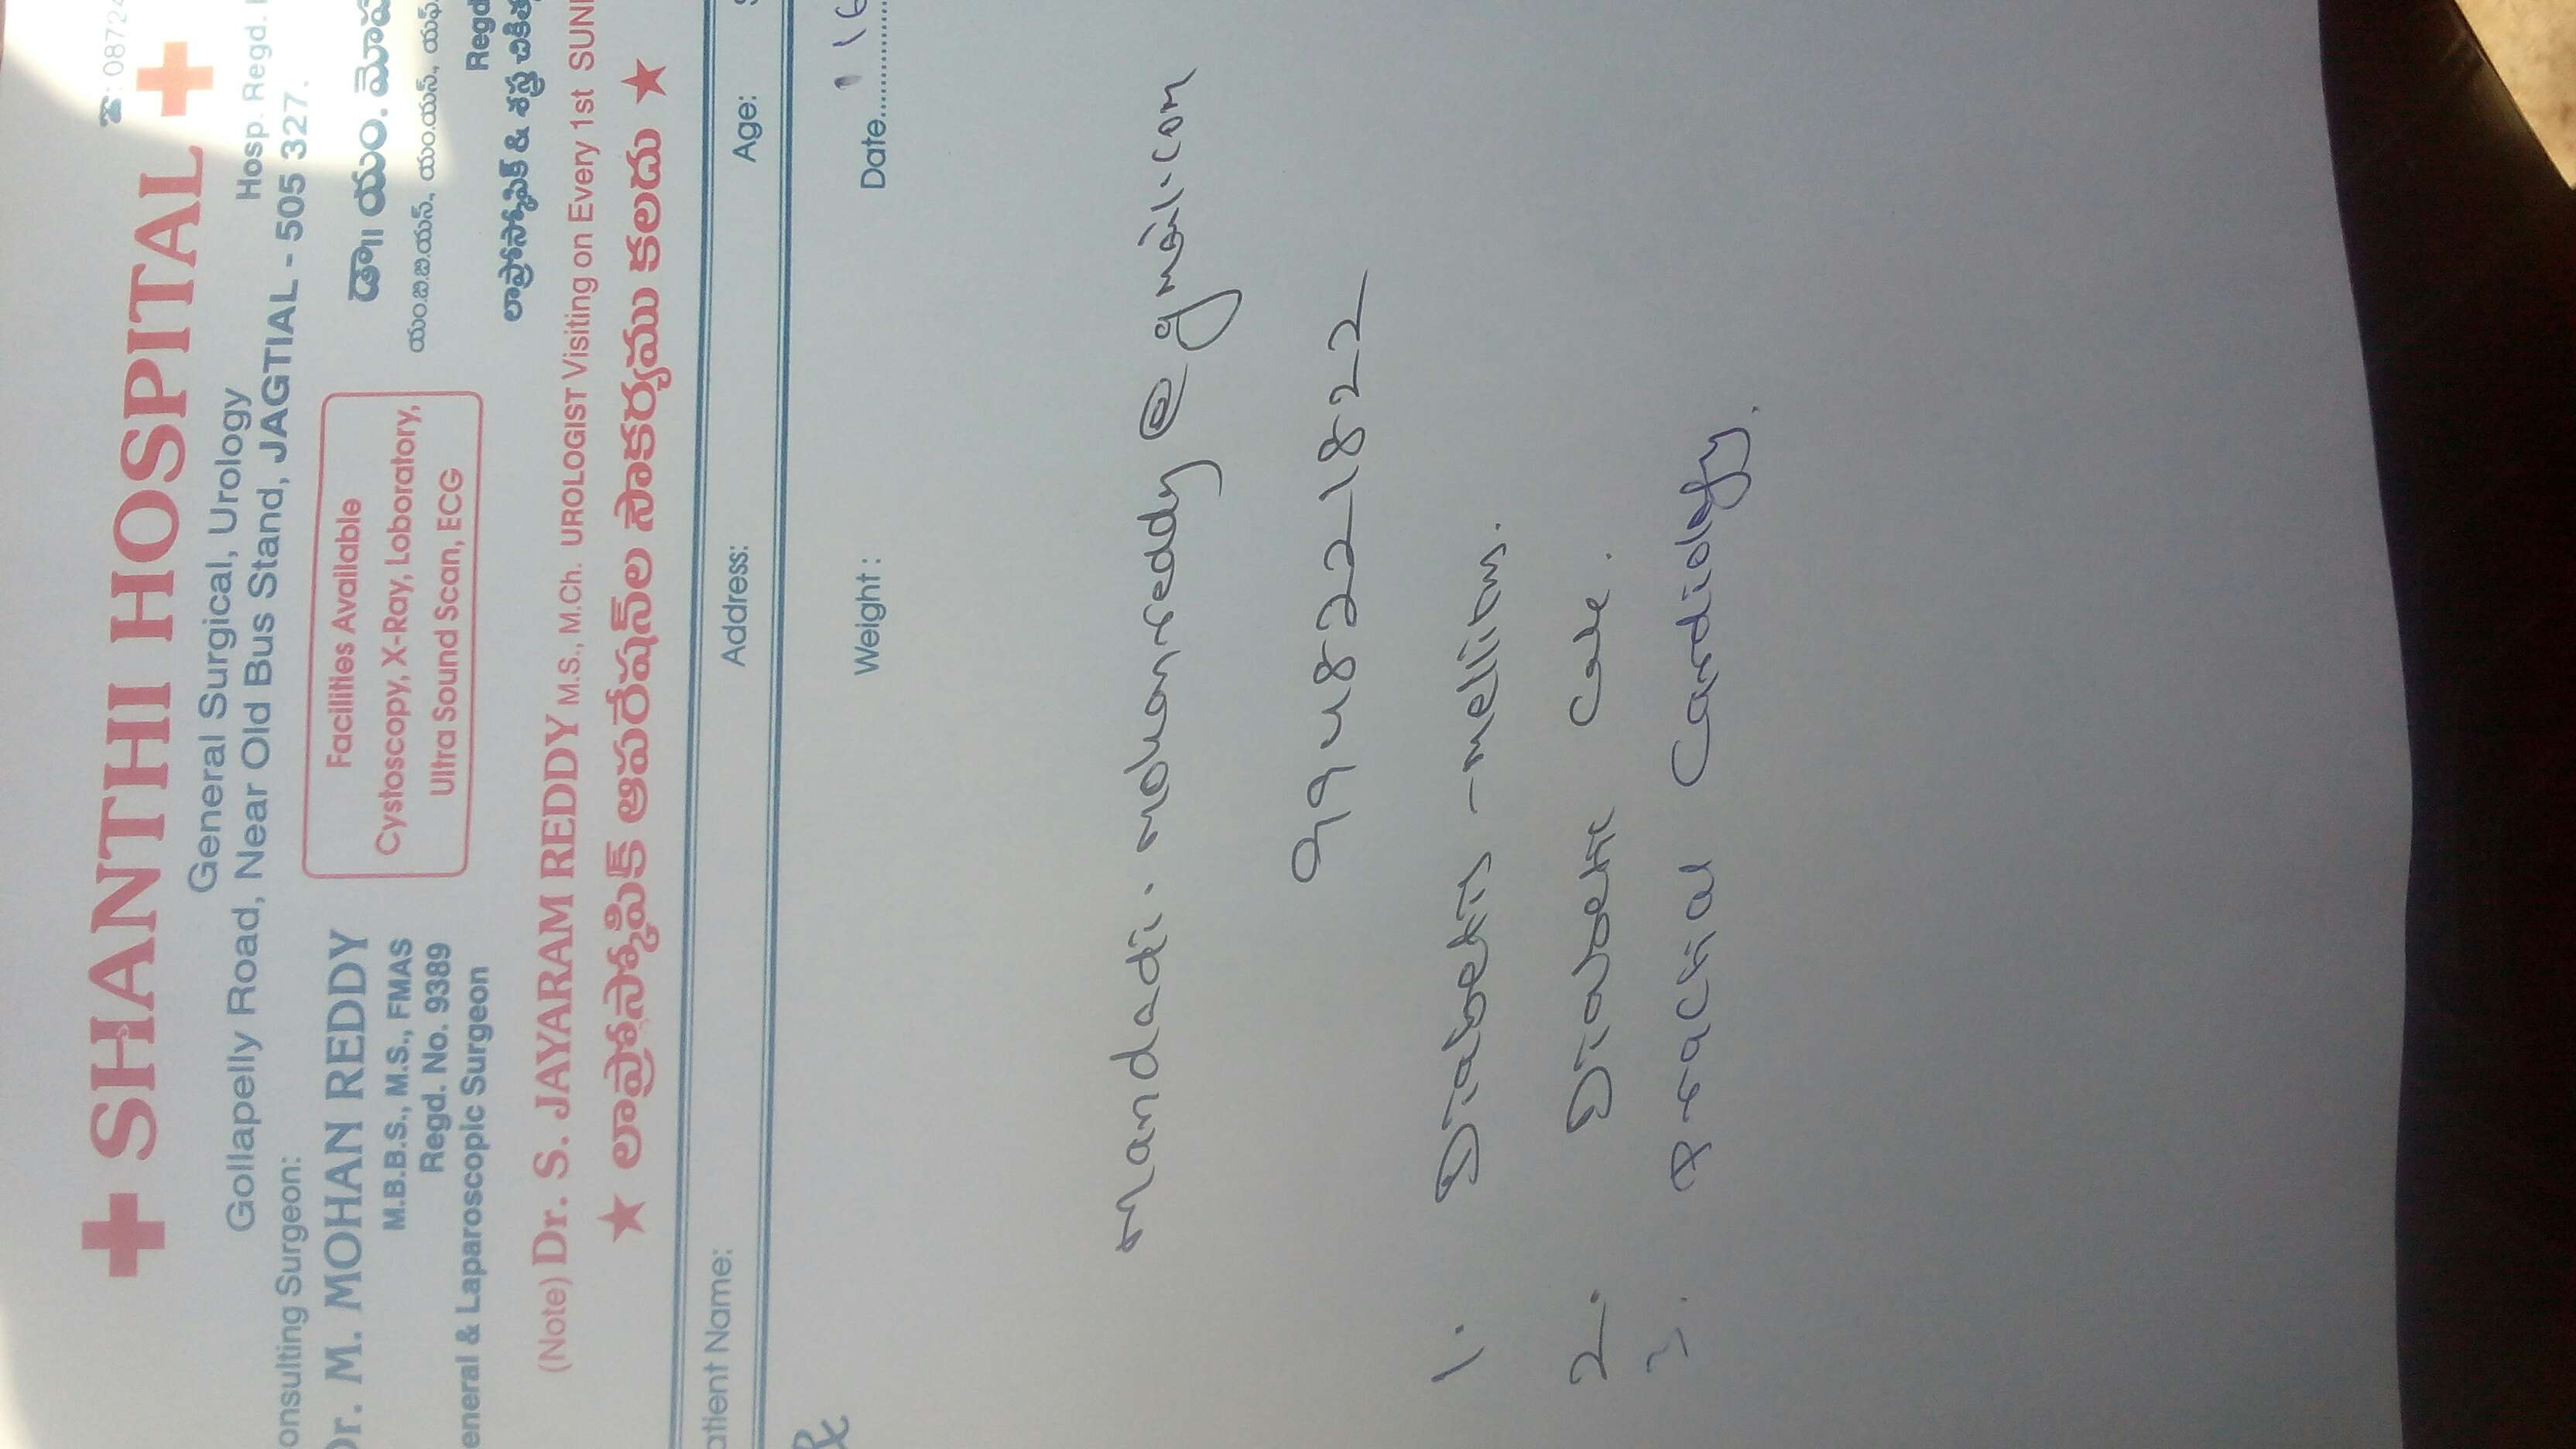 ☎: 08724
✚ SHANTHI HOSPITAL ✚
General Surgical, Urology
Hosp. Regd.
Gollapelly Road, Near Old Bus Stand, JAGTIAL - 505 327.
onsulting Surgeon:
Dr. M. MOHAN REDDY
M.B.B.S., M.S., FMAS
Regd. No. 9389
eneral & Laparoscopic Surgeon
Facilities Available
Cystoscopy, X-Ray, Loboratory,
Ultra Sound Scan, ECG
డా॥ యం. మోహ
యం.బి.బి.యస్., యం.యస్., యఫ్.
Regd
లాప్రోస్కోపిక్ & శస్త్ర చికిత్స
(Note) Dr. S. JAYARAM REDDY M.S., M.Ch. UROLOGIST Visiting on Every 1st SUN
★ లాప్రోస్కోపిక్ ఆపరేషన్‌ల సౌకర్యము కలదు ★
atient Name: Address: Age: S
Weight: Date
℞
mandadi.mohanreddy@gmail.com
9948221822
1. Diabetes -mellitus.
2. Diabetic Care.
3. Practical Cardiology.